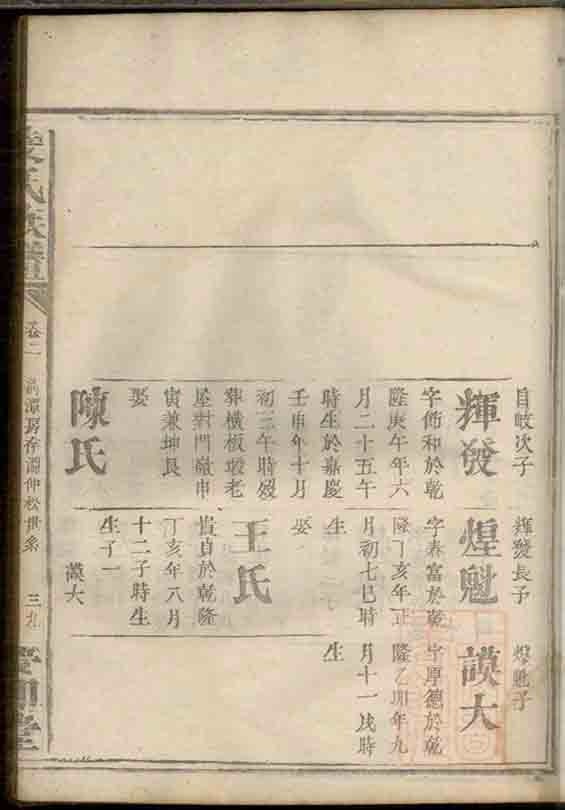 自岐次子
輝發
字飾和於乾
隆庚午年六
月二十五午
時生於嘉慶
壬申年十月
初三午時歿
葬橫板塅老
屋對門嶺申
寅兼坤艮
娶
陳氏
輝發長子
煌魁
字春富於乾
隆丁亥年正
月初七巳時
生
娶
王氏
貴貞於乾隆
丁亥年八月
十二子時生
生子一
謨大
煌魁子
謨大
字厚德於乾
隆乙卯年九
月十一戌時
生
氏族譜
卷二
潭房存淵仲松世系
三九
堂